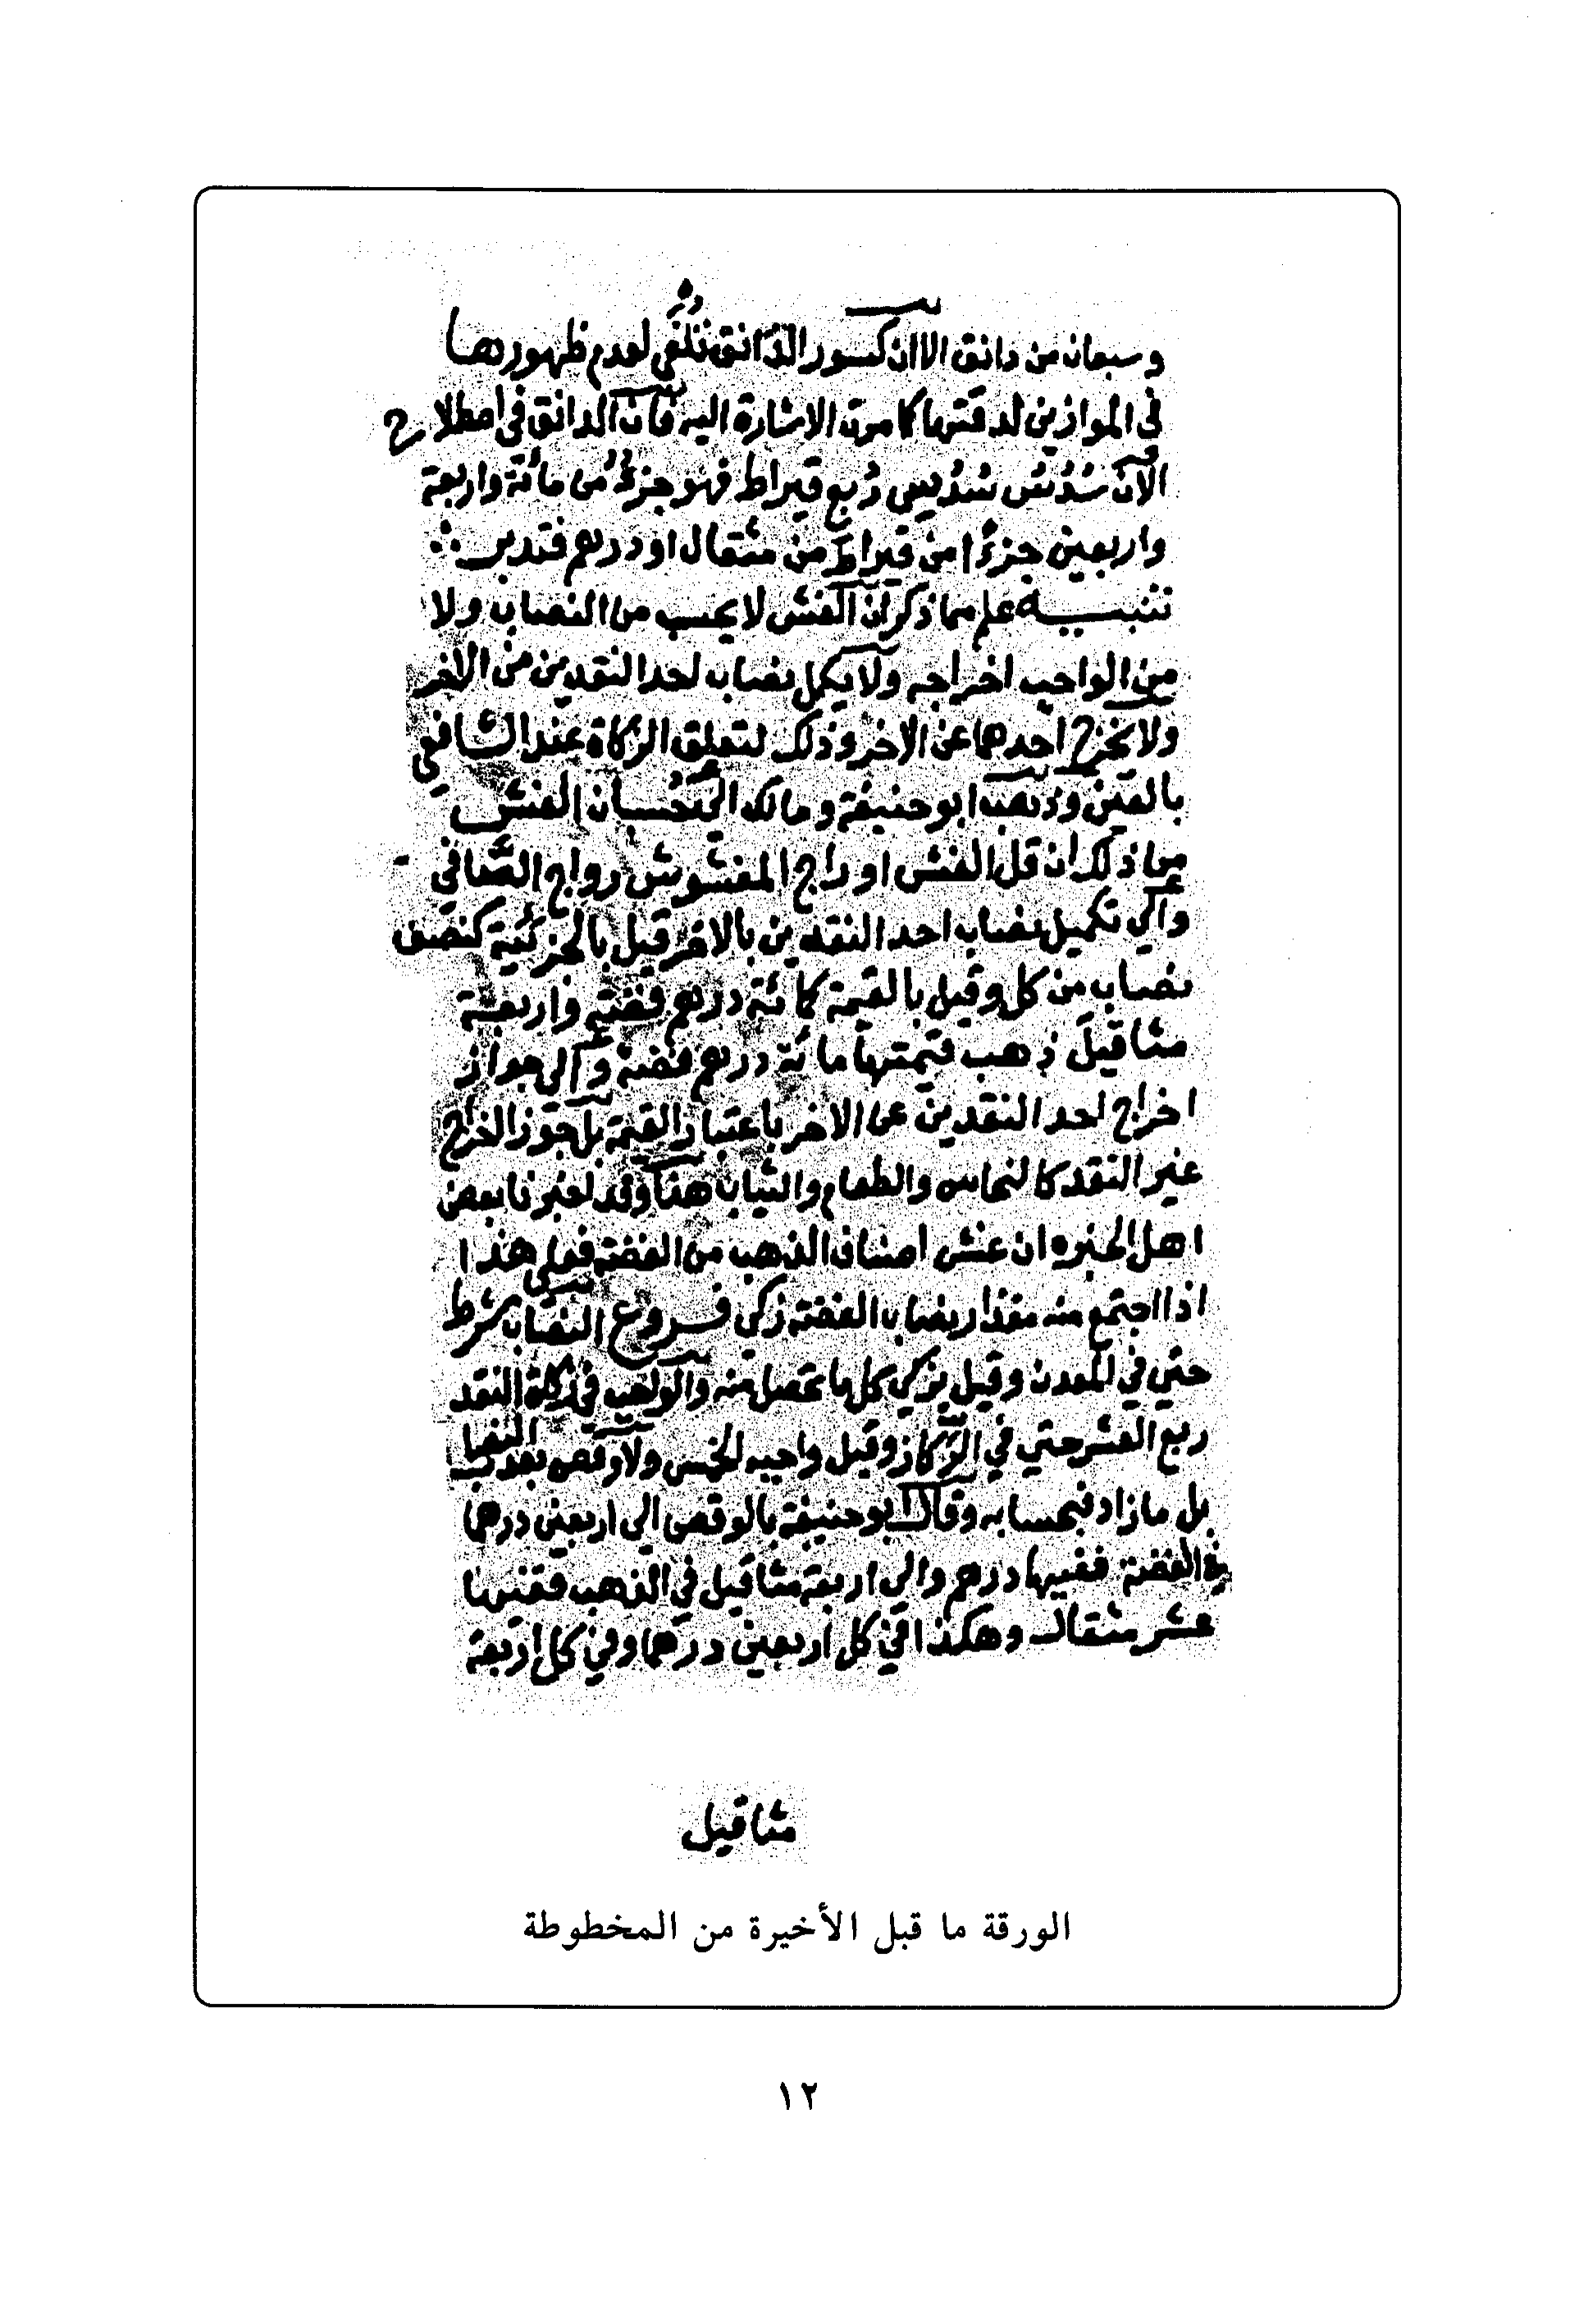 وسبعان من دانق الا ان كسور الدانق تلغي لعدم ظهورها
في الموازين لدقتها كما مرت الاشارة اليه فان الدانق في اصطلاح
الآن سُدُسُ سُدُسِ رُبع قيراط فهو جزءٌ من مائة واربعة
واربعين جزءًا من قيراط من مثقال او درهم فتدبر
تنبيه علم مما ذكر ان الغش لا يحسب من النصاب ولا
من الواجب اخراجه ولا يكمل نصاب احد النقدين من الاخر
ولا يخرج احدهما عن الاخر وذلك لتعلق الزكاة عند الشافعي
بالعين وذهب ابو حنيفة ومالك الى حُسبان الغش
مما ذكر ان قل الغش او راج المغشوش رواج الصافي
والي تكميل نصاب احد النقدين بالاخر قيل بالجزئية كنصف
نصاب من كل وقيل بالقيمة كمائة درهم فضة واربعة
مثاقيل ذهب قيمتها مائة درهم فضة والى جواز
اخراج احد النقدين عن الاخر باعتبار القيمة بل جوز اخراج
غير النقد كالنحاس والطعام والثياب هذا وقد اخبرنا بعض
اهل الخبره ان غش اصناف الذهب من الفضة فعلى هذا
اذا اجتمع منه مقدار نصاب الفضة زكي فروع النصاب شرط
حتي في المعدن وقيل يزكي كل ما تحصل منه والواجب في زكاة النقد
ربع العشر حتي في الركاز وقيل واجبه الخمس ولا وقص بعد النصاب
بل ما زاد فبحسابه وقال ابو حنيفة بالوقص الى اربعين درهما
في الفضة ففيها درهم والي اربعة مثاقيل في الذهب ففيها
عشر مثقال وهكذا في كل اربعين درهما وفي كل اربعة
مثاقيل
الورقة ما قبل الأخيرة من المخطوطة
١٢